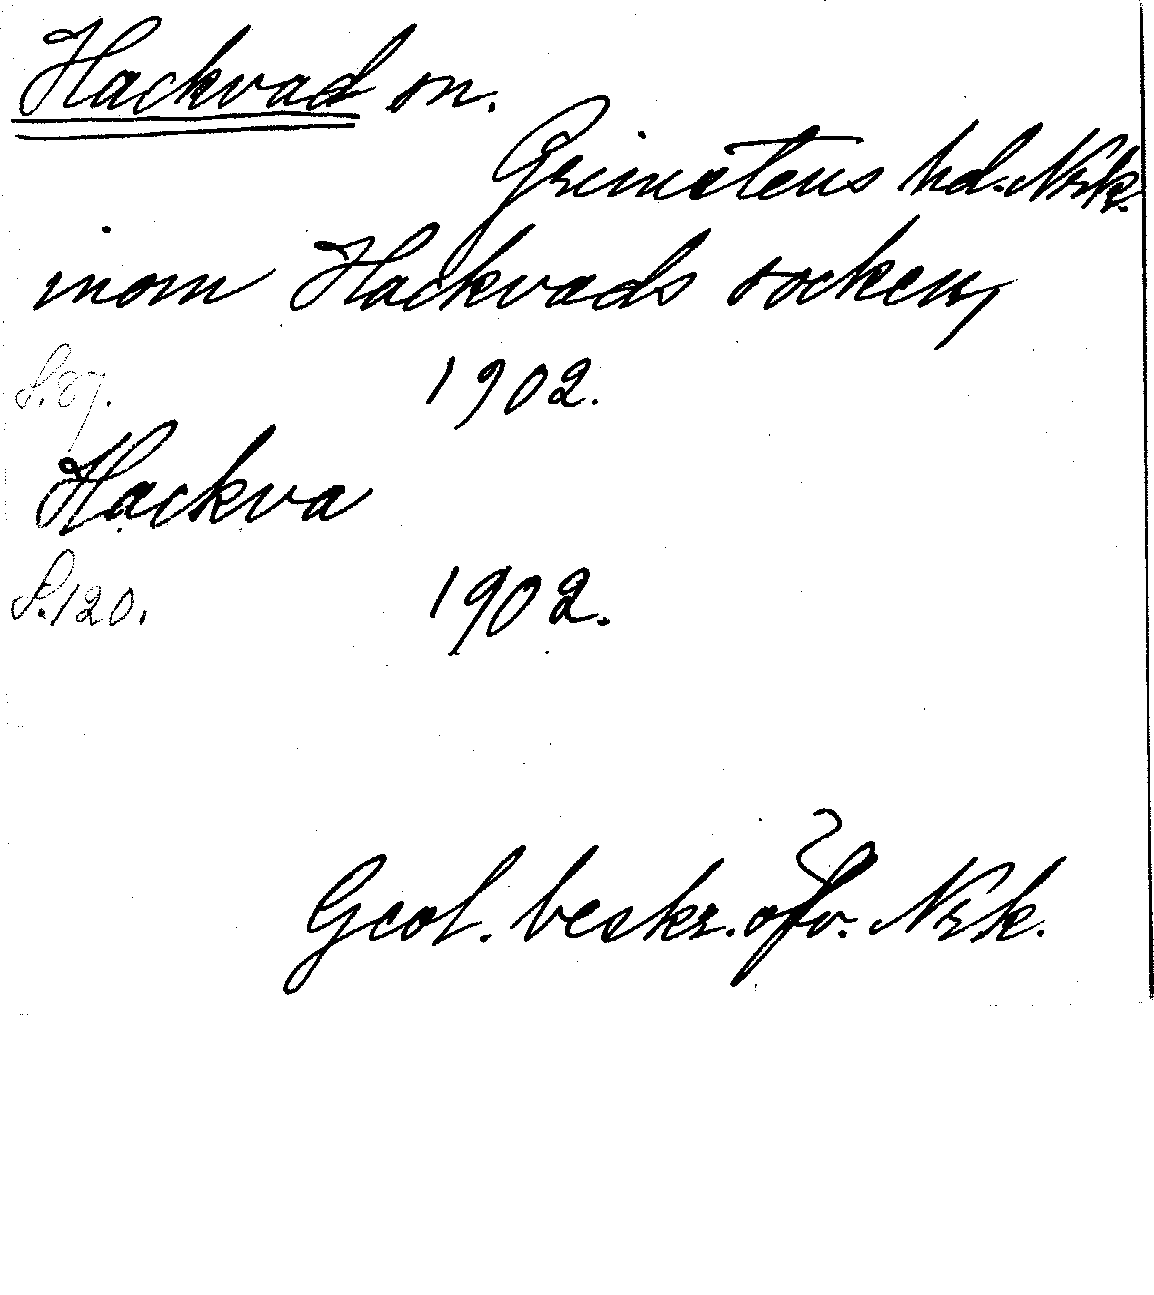 Hackvad sn.
Grimstens hd. Nrk.
inom Hackvads socken,
S. 87. 1902.
Hackva
S. 120. 1902.
Geol. beskr. öfv. Nrk.